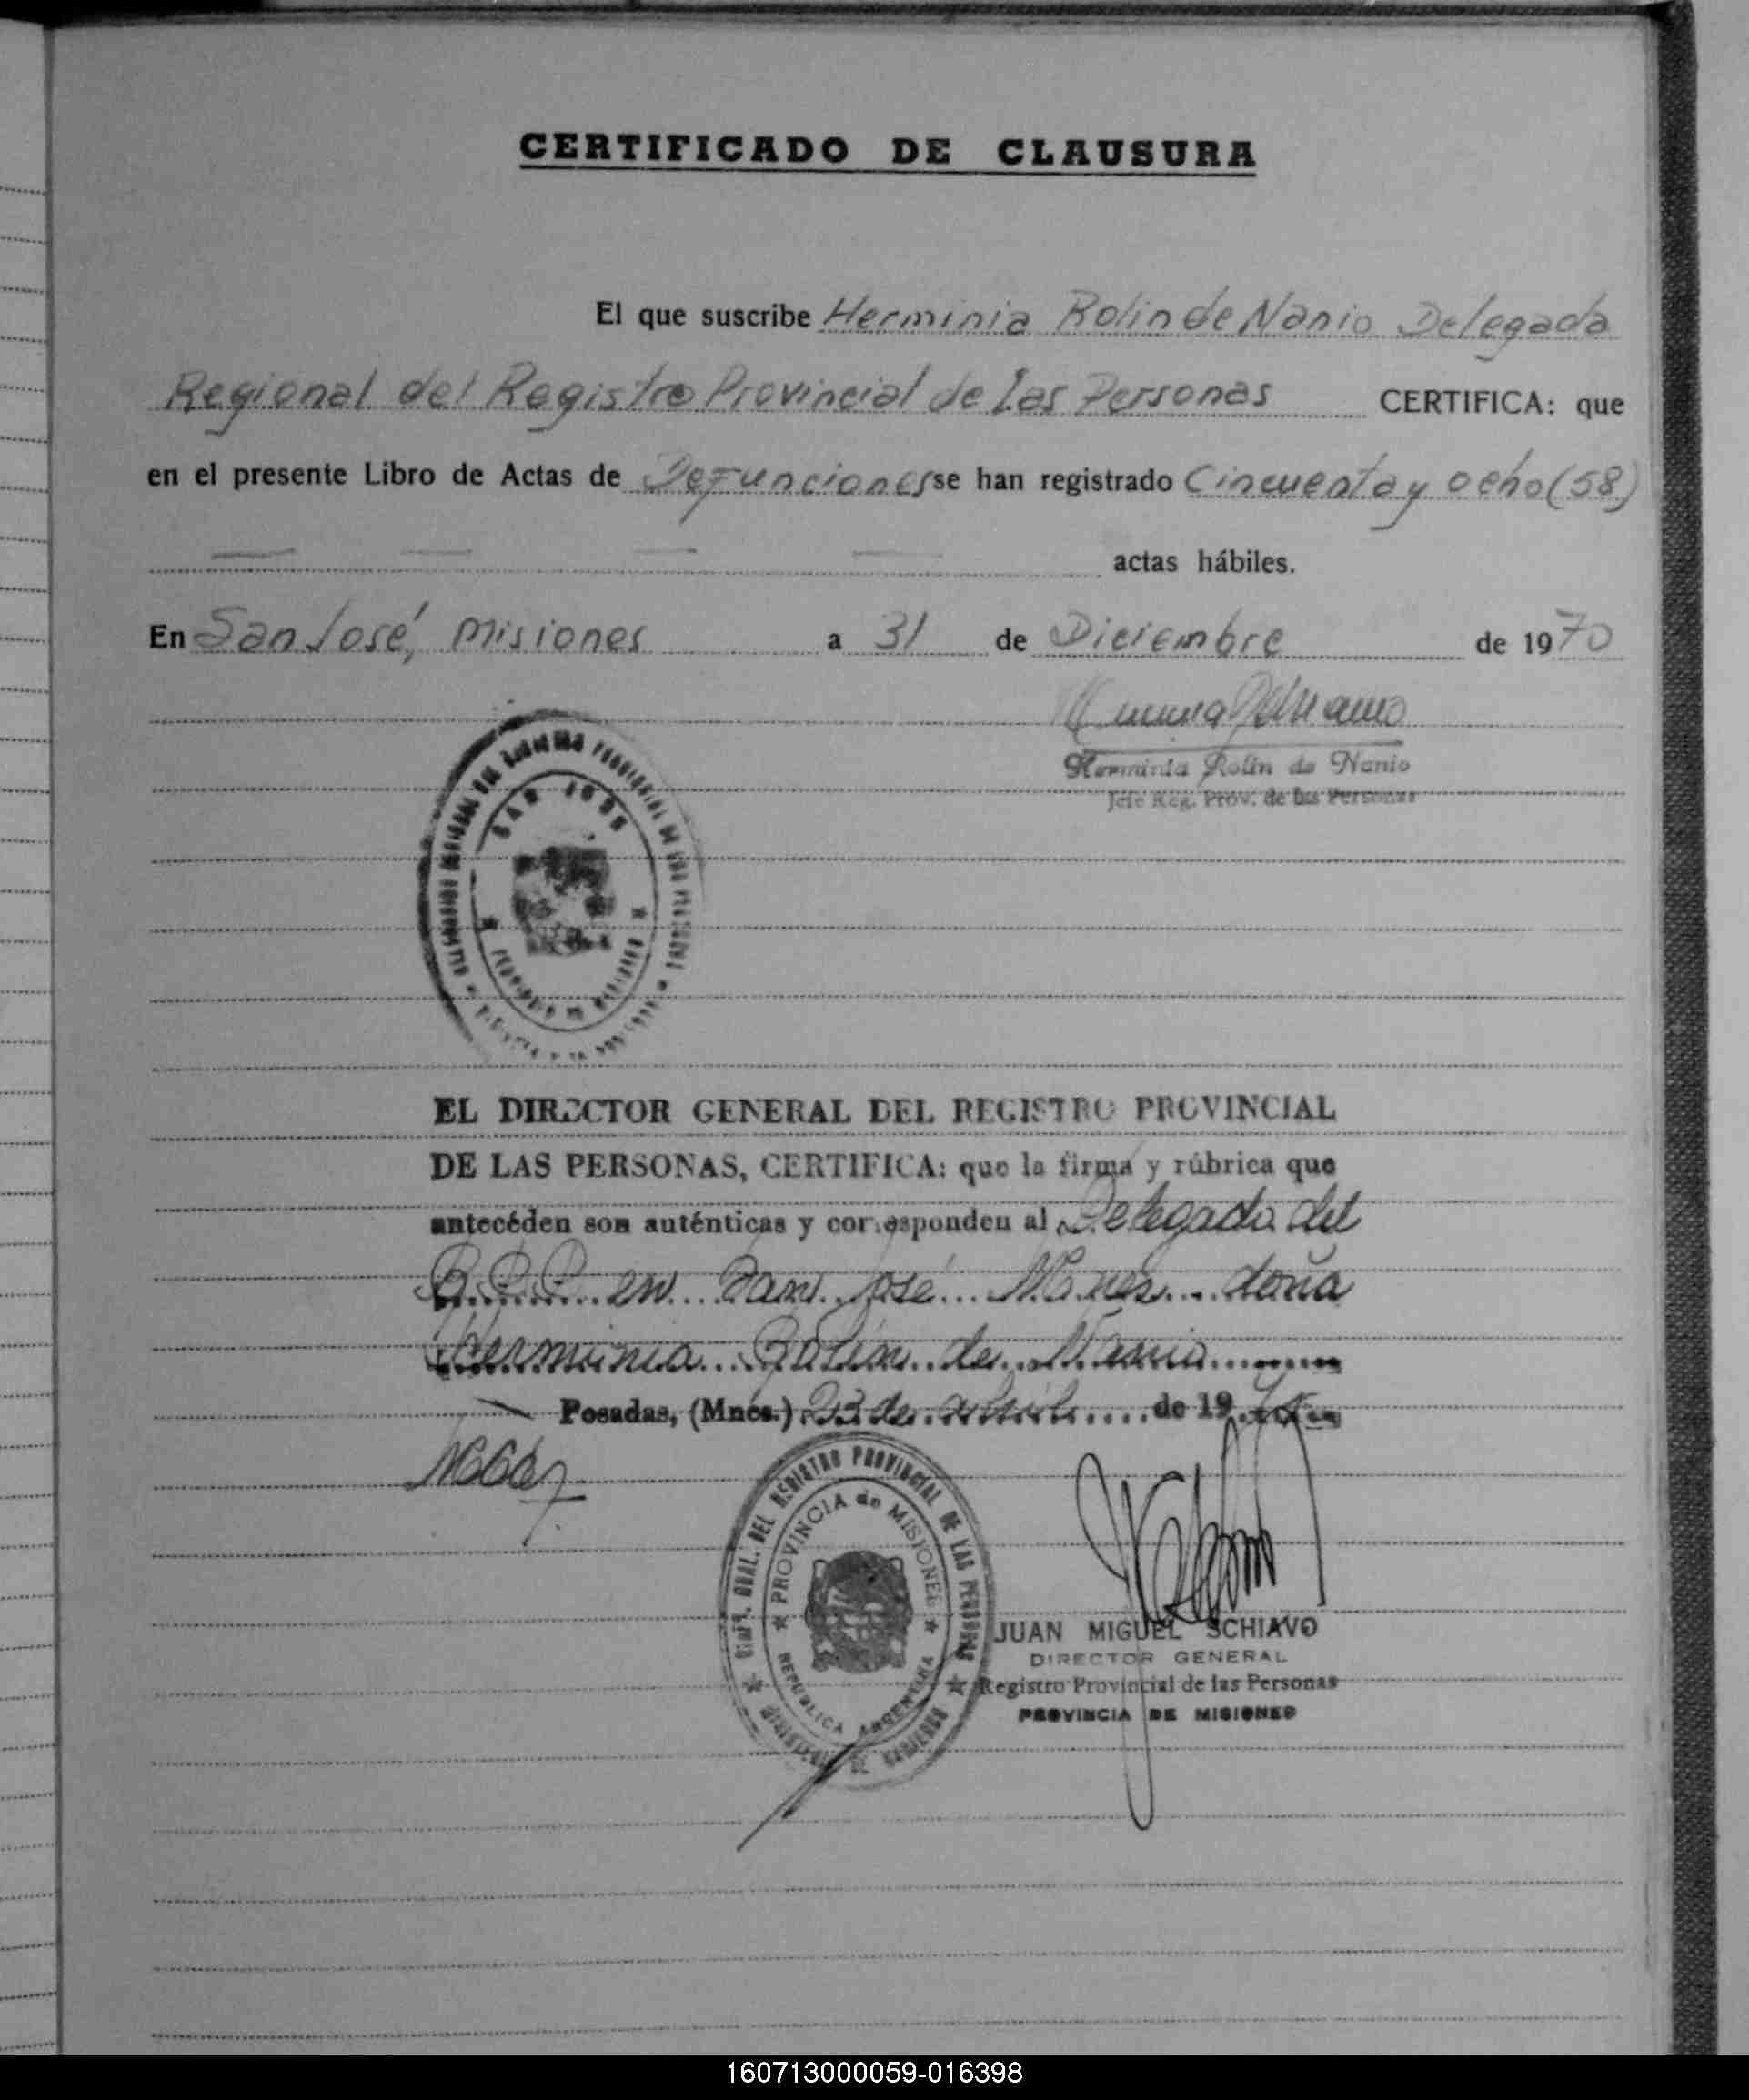 CERTIFICADO DE CLAUSURA
El que suscribe Herminia Rolin de Nanio Delegada
Regional del Registro Provincial de Las Personas CERTIFICA: que
en el presente Libro de Actas de Defunciones se han registrado Cincuenta y ocho (58)
actas hábiles.
En San José, Misiones a 31 de Diciembre de 1970
Herminia Rolin de Nanio
Jefe Reg. Prov. de las Personas
SAN JOSE
PROVINCIA DE MISIONES
EL DIRECTOR GENERAL DEL REGISTRO PROVINCIAL
DE LAS PERSONAS, CERTIFICA: que la firma y rúbrica que
antecéden son auténticas y corresponden al Delegada del
R.P.P. en San José Mnes. doña
Herminia Rolin de Nanio
Posadas, (Mnes.) 23 de abril de 19
GRAL. DEL REGISTRO PROVINCIAL DE LAS PERSONAS
PROVINCIA de MISIONES
REPUBLICA ARGENTINA
MINISTERIO DE GOBIERNO
JUAN MIGUEL SCHIAVO
DIRECTOR GENERAL
Registro Provincial de las Personas
PROVINCIA DE MISIONES
160713000059-016398